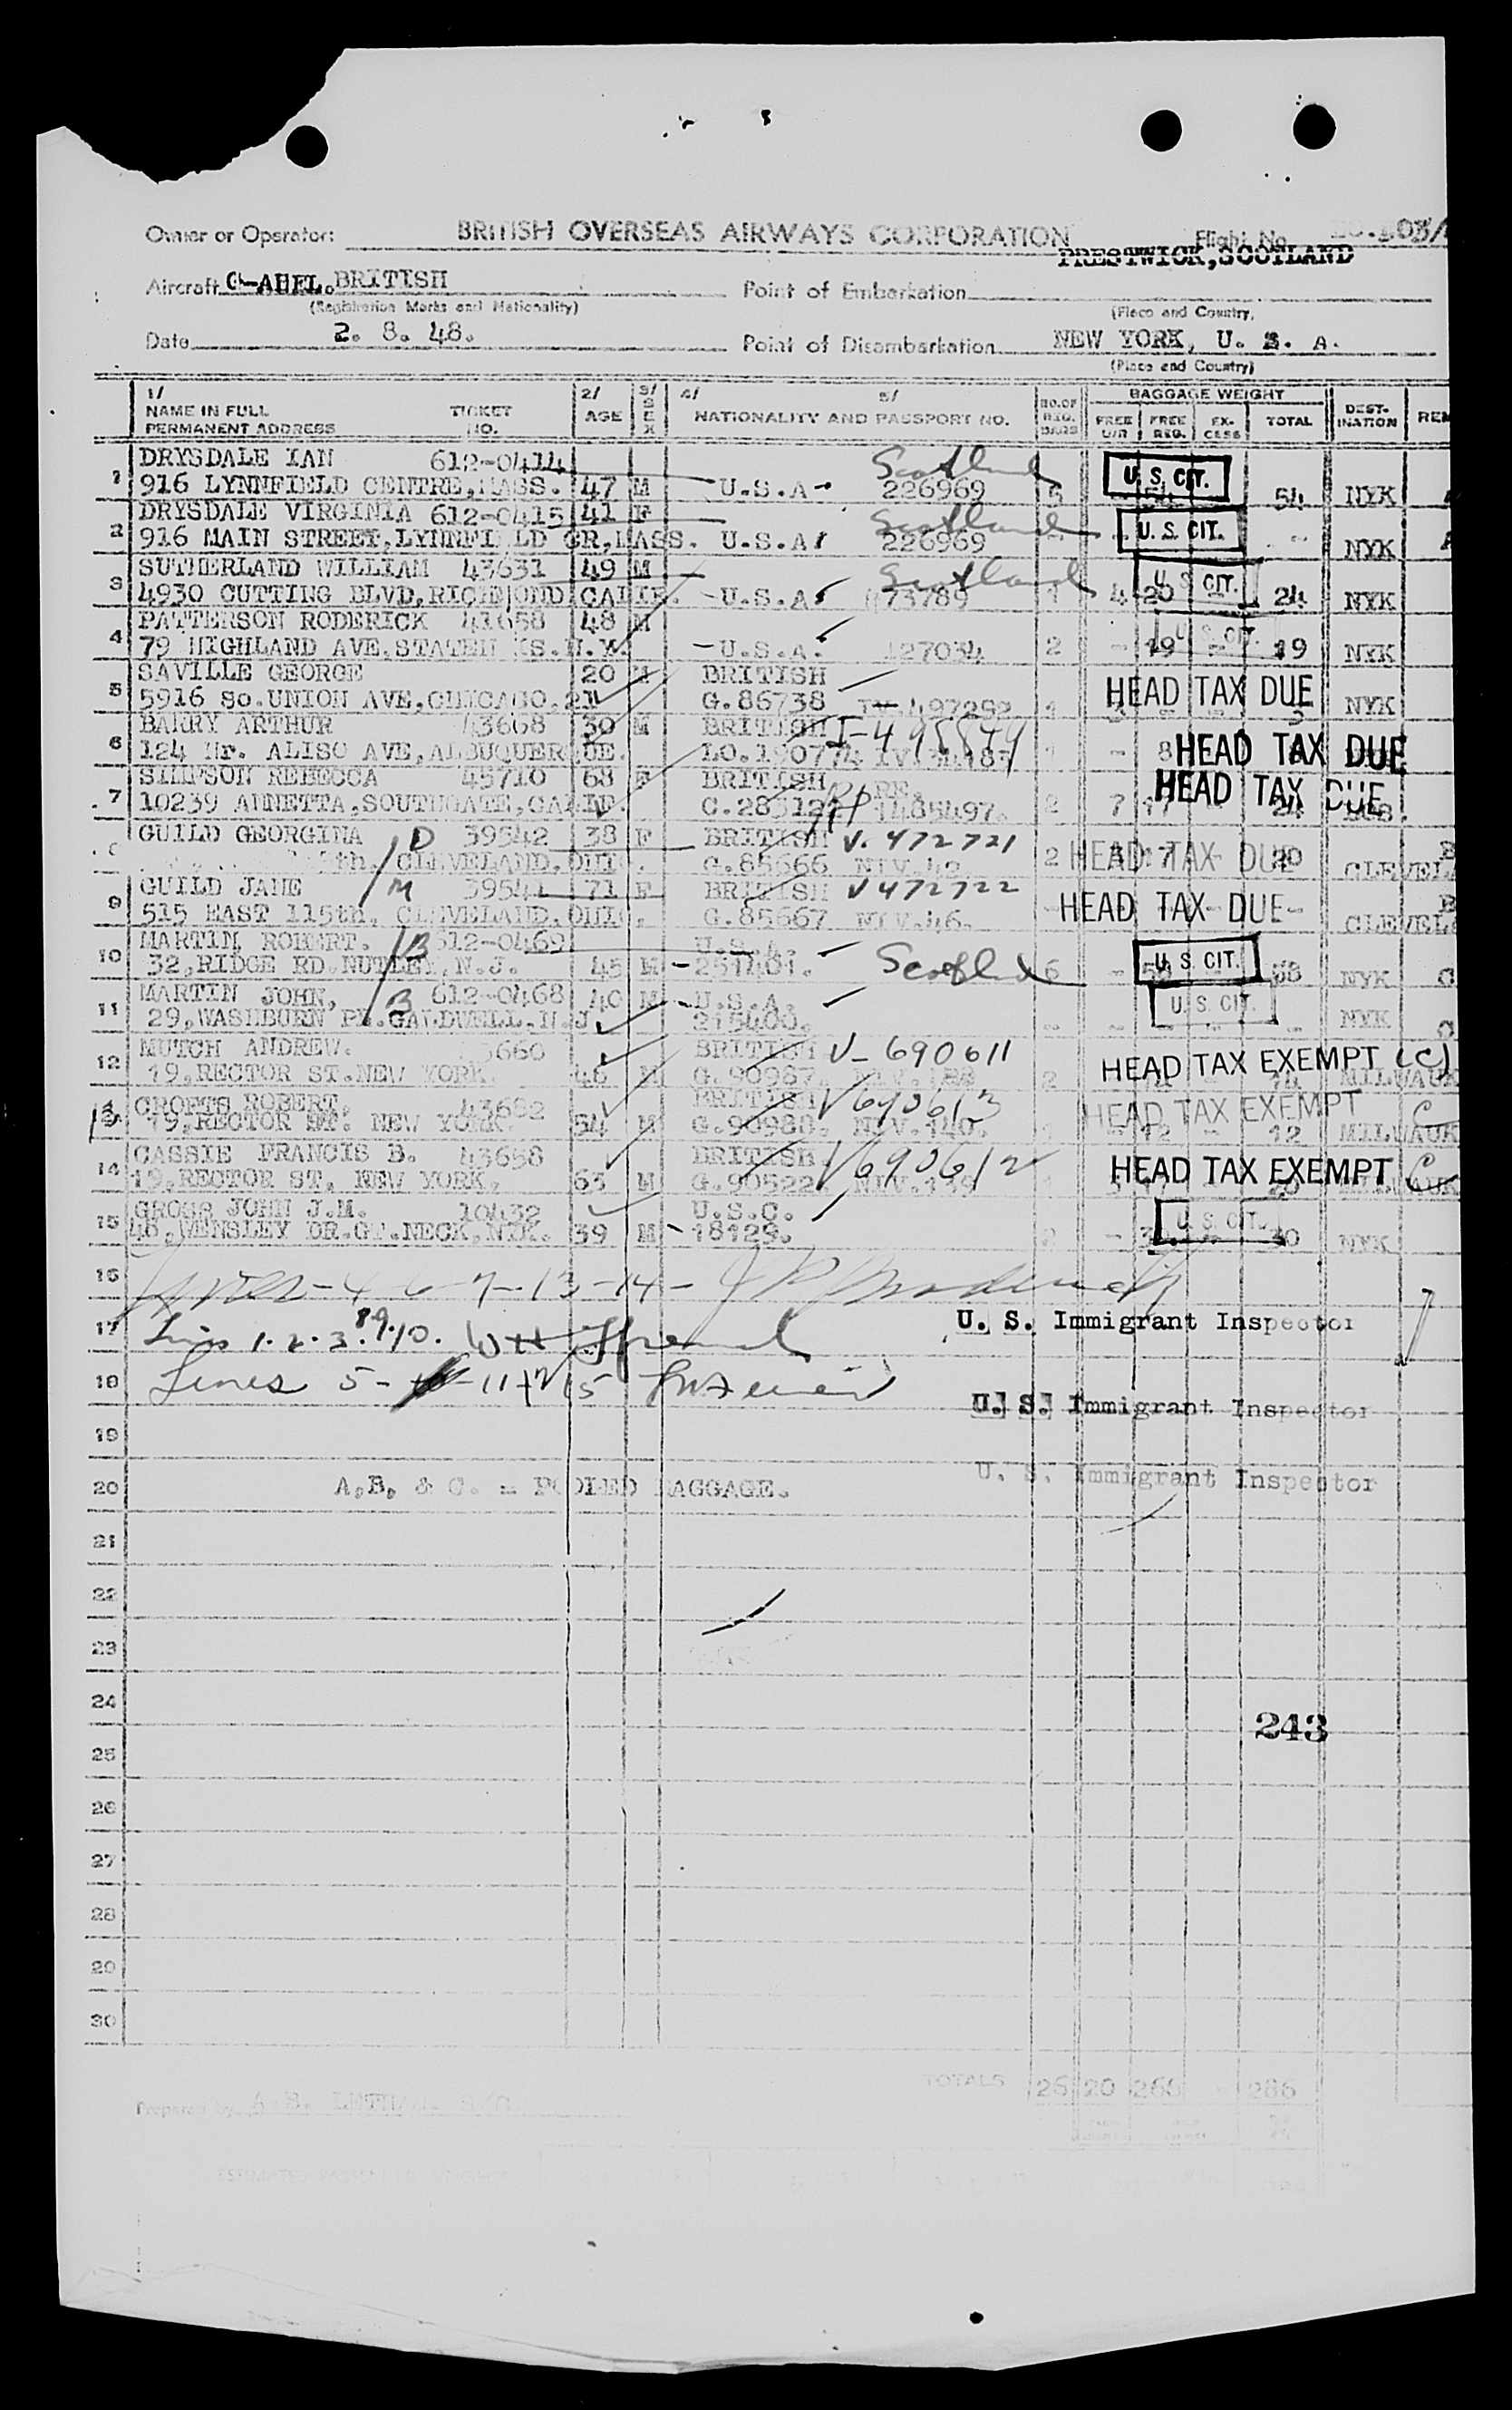 Owner or Operator: BRITISH OVERSEAS AIRWAYS CORPORATION Flight No. 03/
PRESTWICK, SCOTLAND
Aircraft G-AHEL. BRITISH Point of Embarkation
(Registration Marks and Nationality) (Place and Country,
Date 2. 8. 48. Point of Disembarkation NEW YORK, U. S. A.
(Place and Country)
1/ 2/ 3/ 4/ 5/ NO. OF BAGGAGE WEIGHT
NAME IN FULL TICKET AGE SEX NATIONALITY AND PASSPORT NO. FREE FREE EX- TOTAL DEST- REM
PERMANENT ADDRESS NO. REG. CESS INATION
DRYSDALE IAN 612-0414 Scotland
1 916 LYNNFIELD CENTRE, MASS. 47 M U.S.A- 226969 U. S. CIT. 54 NYK
DRYSDALE VIRGINIA 612-0415 41 F Scotland
2 916 MAIN STREET, LYNNFIELD CR, MASS. U.S.A 226969 U. S. CIT. NYK
SUTHERLAND WILLIAM 43631 49 M Scotland
3 4930 CUTTING BLVD, RICHMOND CALIF. -U.S.A. 73789 1 4 20 U. S. CIT. 24 NYK
PATTERSON RODERICK 41658 48 M
4 79 HIGHLAND AVE, STATEN IS. N.Y. -U.S.A. 127034 2 - 19 - U. S. CIT. 19 NYK
SAVILLE GEORGE 20 M BRITISH
5 5916 So. UNION AVE, CHICAGO. 21 G. 86738 HEAD TAX DUE NYK
BARRY ARTHUR 43668 30 M BRITISH I-498849
6 124 Nr. ALISO AVE, ALBUQUERQUE. LO. 190774 - 8 HEAD TAX DUE
SIMPSON REBECCA 45710 68 F BRITISH RE.
7 10239 ANNETTA, SOUTHGATE, CALIF. C. 283122 1485497. 2 7 17 HEAD TAX DUE 24
GUILD GEORGINA D 39542 38 F BRITISH V. 472721
th. CLEVELAND, OHIO. G. 85666 NIV. 42 2 HEAD TAX DUE 20 CLEVEL
GUILD JANE M 39541 71 F BRITISH V 472722
9 515 EAST 115th. CLEVELAND, OHIO. G. 85667 NIV. 46. HEAD TAX DUE CLEVEL
MARTIN ROBERT. B 612-0469 U.S.A.
10 32, RIDGE RD. NUTLEY, N.J. 45 M - 251401. Scotland 6 U. S. CIT. NYK C
MARTIN JOHN, B 612-0468 40 M U.S.A.
11 29, WASHBURN PL. CALDWELL. N.J. 215400. U. S. CIT. NYK C
MUTCH ANDREW. BRITISH V- 690611
12 19, RECTOR ST. NEW YORK. 46 M G. 90987. 2 HEAD TAX EXEMPT (C) MILWAUK
CROFTS ROBERT. 43662 BRITISH V690613
13 19, RECTOR ST. NEW YORK. 54 M G. 90988. NIV. 140. HEAD TAX EXEMPT 12 12 MILWAUK C
CASSIE FRANCIS B. 43658 BRITISH. V690612
14 19, RECTOR ST. NEW YORK. 63 M G. 90522 NIV. 139 HEAD TAX EXEMPT C
GROSS JOHN J.M. 10432 U.S.C.
15 46, WENSLEY DR. GT. NECK, NYK. 39 M - 18129. 2 U. S. CIT. 30 NYK
16 Lines - 4 - 6 - 7 - 13 - 14 -
U. S. Immigrant Inspector
17 Lines 1. 2. 3. 8. 9. 10.
18 Lines 5 - 11 + 12 15
U. S. Immigrant Inspector
19
U. S. Immigrant Inspector
20 A, B, & C. = POOLED BAGGAGE.
21
22
23
24
243
25
26
27
28
29
30
TOTALS 26 20 266 286
Prepared by